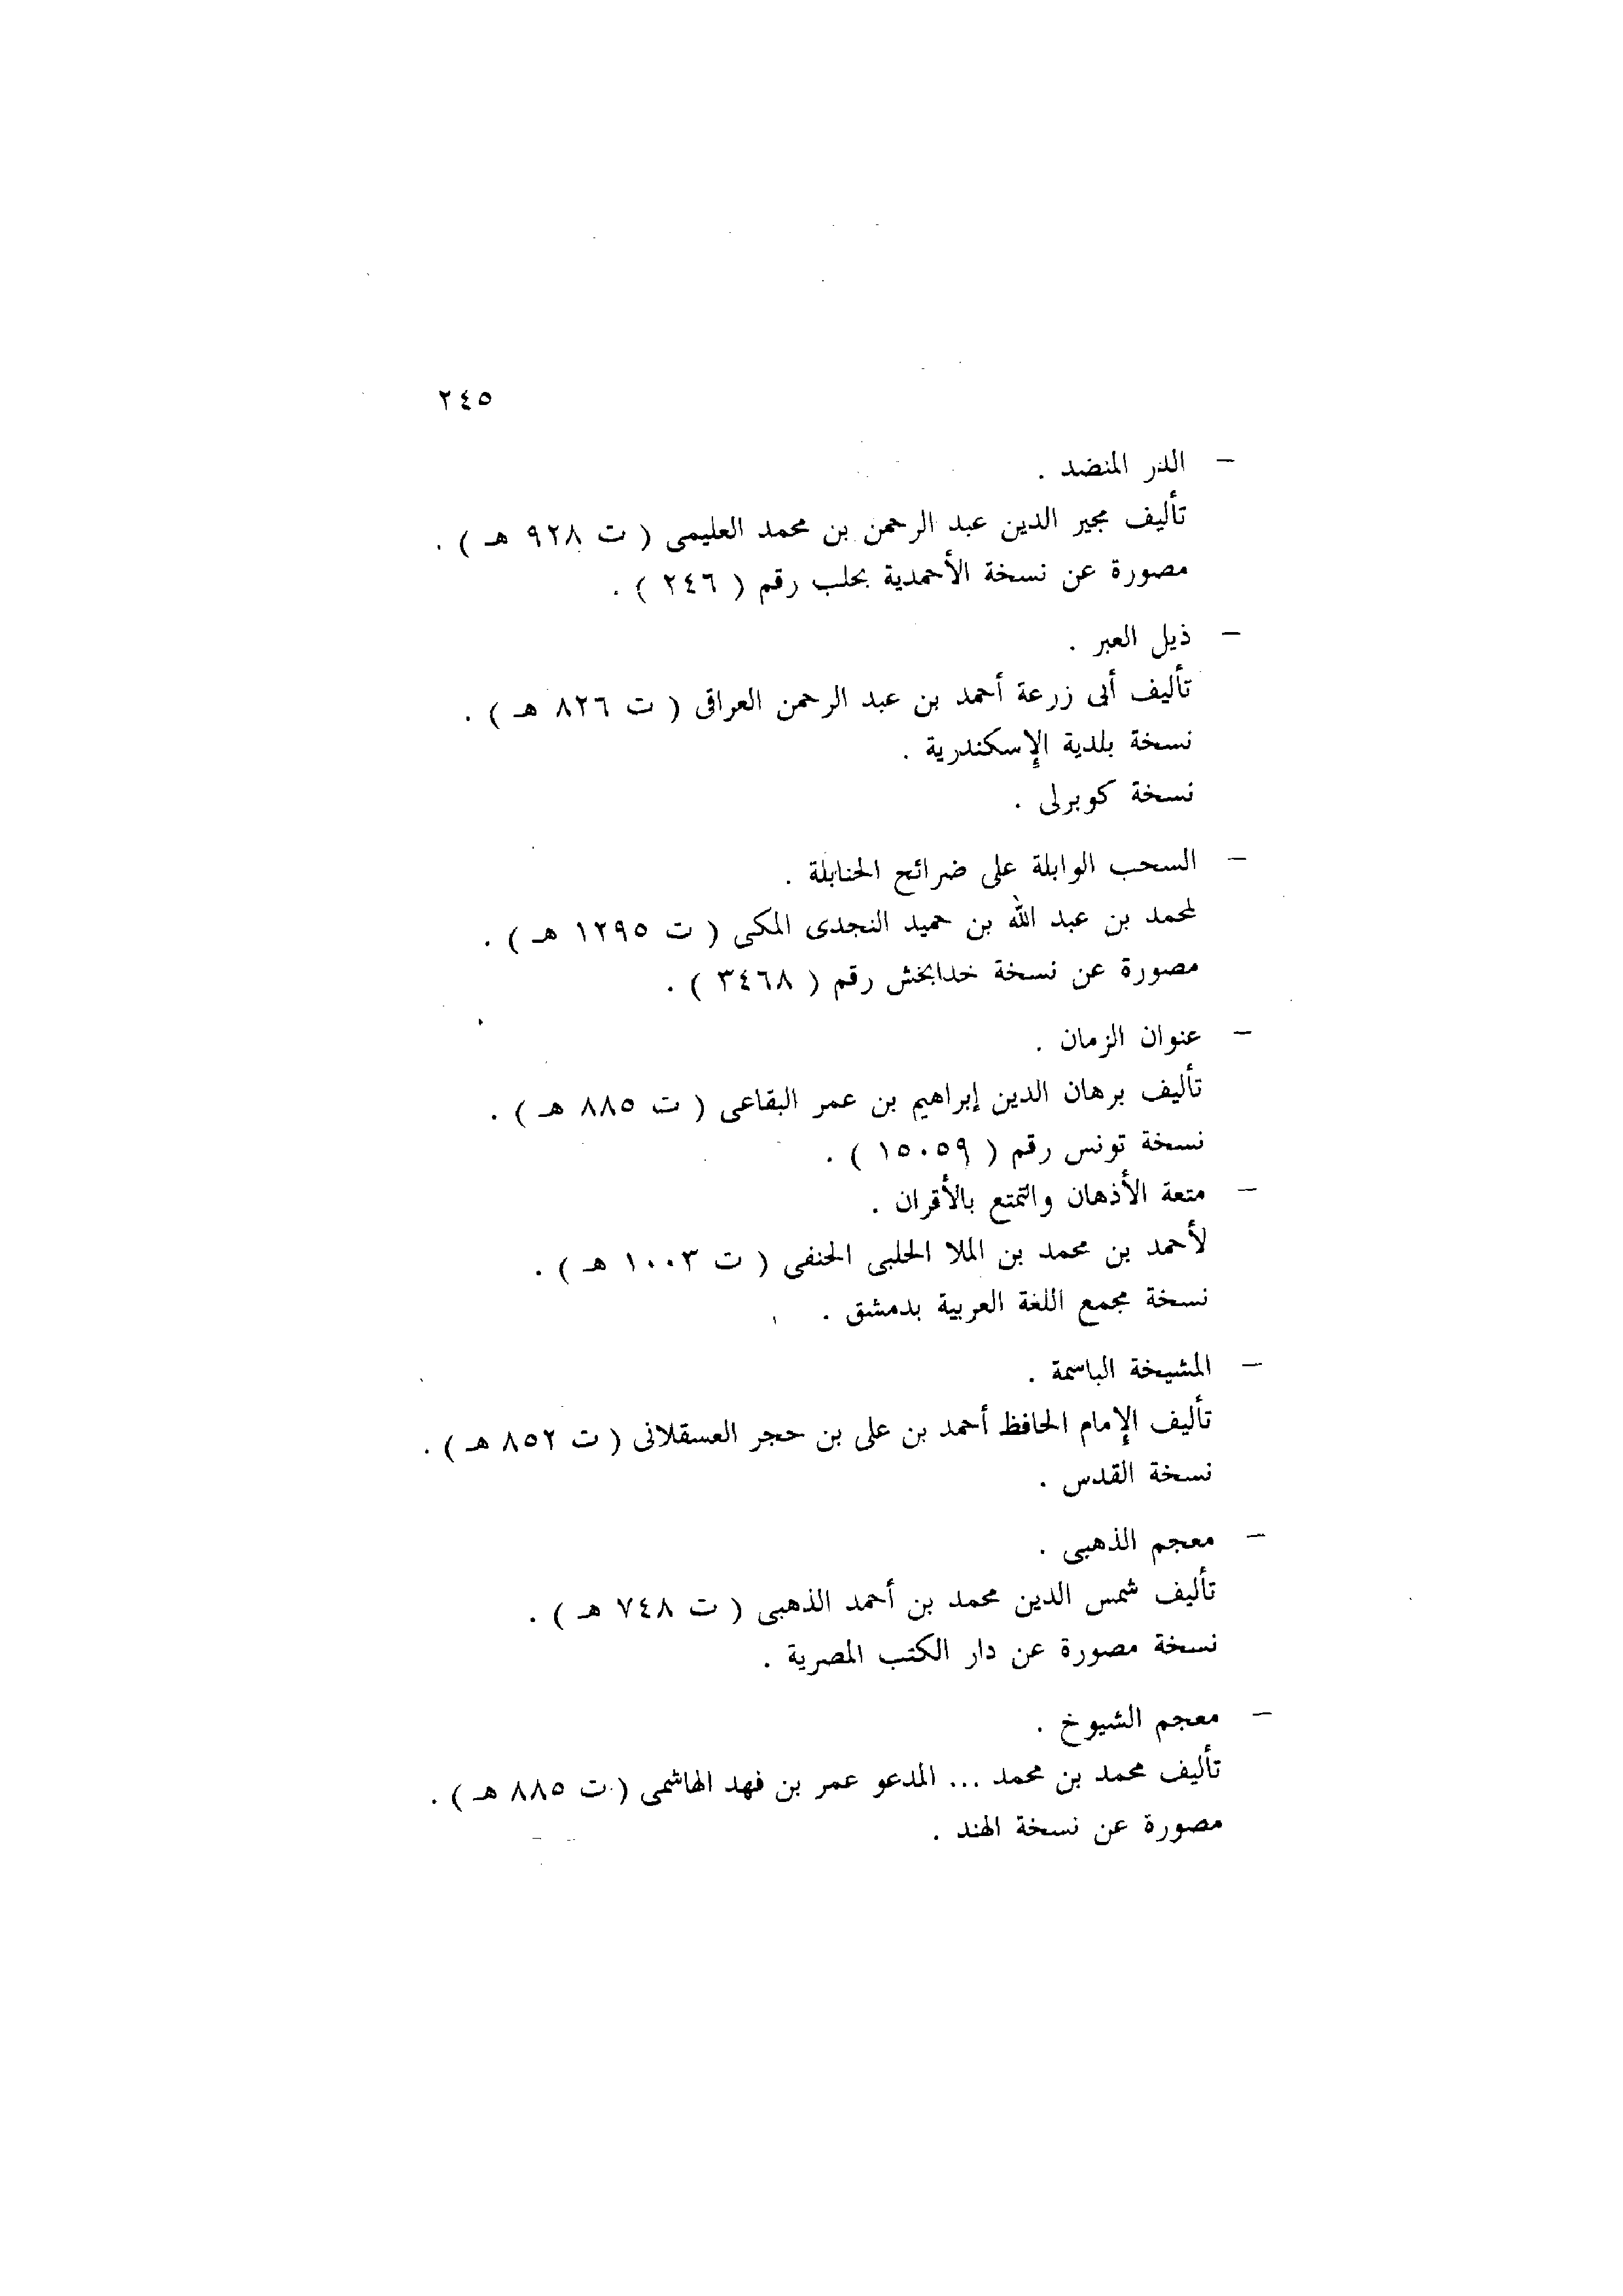 ٢٤٥
– الدر المنضد .
تأليف مجير الدين عبد الرحمن بن محمد العليمى ( ت ٩٢٨ هـ ) .
مصورة عن نسخة الأحمدية بحلب رقم ( ٢٤٦ ) .
– ذيل العبر .
تأليف أبى زرعة أحمد بن عبد الرحمن العراقى ( ت ٨٢٦ هـ ) .
نسخة بلدية الإسكندرية .
نسخة كوبرلى .
– السحب الوابلة على ضرائح الحنابلة .
لمحمد بن عبد الله بن حميد النجدى المكى ( ت ١٢٩٥ هـ ) .
مصورة عن نسخة خدابخش رقم ( ٣٤٦٨ ) .
– عنوان الزمان .
تأليف برهان الدين إبراهيم بن عمر البقاعى ( ت ٨٨٥ هـ ) .
نسخة تونس رقم ( ١٥٠٥٩ ) .
– متعة الأذهان والتمتع بالأقران .
لأحمد بن محمد بن الملا الحلبى الحنفى ( ت ١٠٠٣ هـ ) .
نسخة مجمع اللغة العربية بدمشق .
– المشيخة الباسمة .
تأليف الإمام الحافظ أحمد بن على بن حجر العسقلانى ( ت ٨٥٢ هـ ) .
نسخة القدس .
– معجم الذهبى .
تأليف شمس الدين محمد بن أحمد الذهبى ( ت ٧٤٨ هـ ) .
نسخة مصورة عن دار الكتب المصرية .
– معجم الشيوخ .
تأليف محمد بن محمد ... المدعو عمر بن فهد الهاشمى ( ت ٨٨٥ هـ ) .
مصورة عن نسخة الهند .